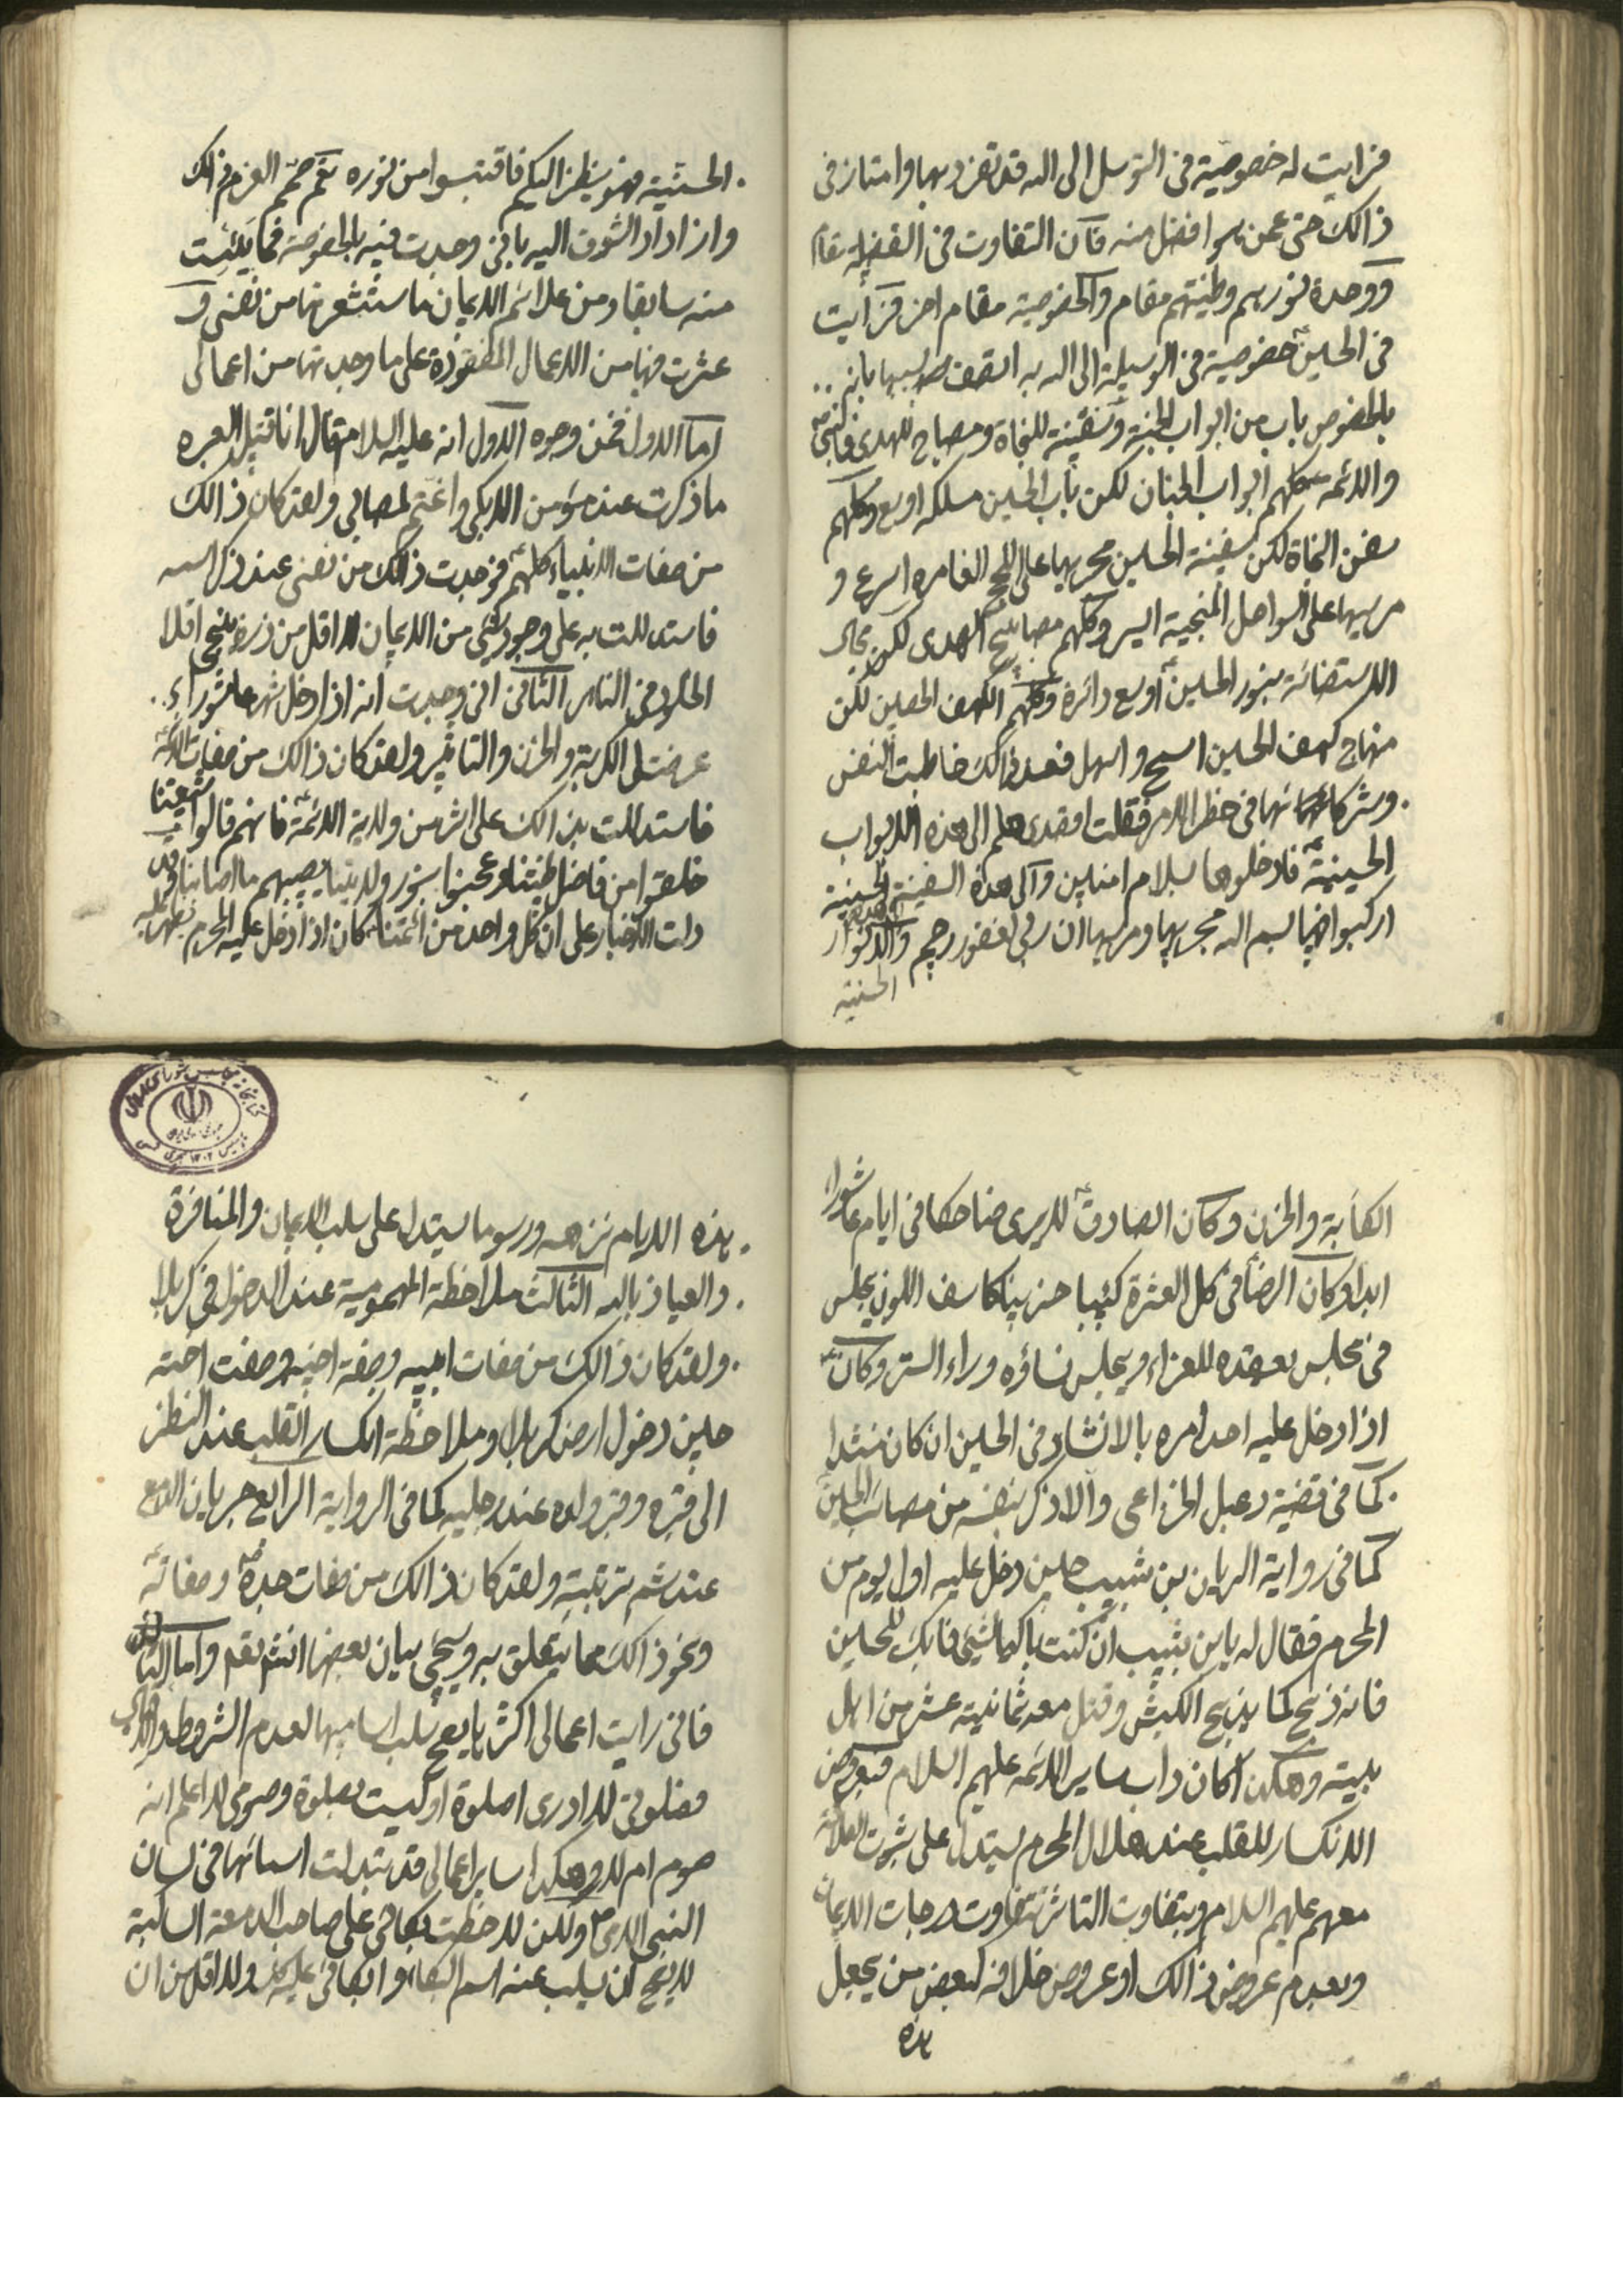 فرايت له خصوصية فى التوسل الى الله قد تفرد بها وامتاز فى
ذالك حتى عمن هو افضل منه فان التفاوت فى الفضيله مقام
ووحدة نورهم وطينتهم مقام والخصوصية مقام اخر فرايت
فى الحسين ع خصوصية فى الوسيلة الى الله به اتصف بسببها بانه
بالخصوص باب من ابواب الجنة وسفينة للنجاة ومصباح للهدى فالنبى ص
والائمه كلهم ابواب الجنان لكن باب الحسين مسلكه اوسع وكلهم
سفن النجاة لكن سفينة الحسين مجريها على اللجج الغامره اسرع و
مرسيها على السواحل المنجية ايسر وكلهم مصابيح الهدى لكن مجال
الاستضائة بنور الحسين ع اوسع دائرة وكلهم الكهف الحصين لكن
منهاج كهف الحسين اسمح واسهل فعند ذالك خاطبت النفس
وشركائها فى خطر الامر فقلت هلم الى هذه الابواب
الحسينية فادخلوها بسلام امنين والى هذه السفينة الحسينية
اركبوا فيها بسم الله مجريها ومرسيها ان ربى لغفور رحيم والى هذه الانوار
الحسينية
الحسينية فهو ينظر اليكم فاقتبسوا من نوره ثم صمم العزم فى ذلك
وازداد الشوق اليه بانى وجدت فيه بالخصوصية فما يئست
منه سابقا ومن علائم الايمان ما ستشعرتها من نفسى و
عثرت فيها من الاعمال المفقوذة على ما وجدتها من اعمالى
اما الاول فمن وجوه الاول انه عليه السلام قال انا قتيل العبره
ما ذكرت عند مؤمن الا بكى واغتم لمصابى ولقد كان ذالك
من صفات الانبياء كلهم ع فوجدت ذالك من نفسى عند ذكر اسمه
فاستدللت به على وجود شئ من الايمان اقل من ذرة ينجى اقلا
الخلود فى النار الثانى انى وجدت انه اذا دخل شهر عاشوراء
عرضت لى الكربة والحزن والتاثير ولقد كان ذالك من صفات الائمة ع
فاستدللت بذالك على اثر من ولاية الائمة ع فانهم قالوا شيعتنا
خلقوا من فاضل طينتنا وعجنوا بنور ولايتنا يصيبهم ما اصابنا وقد
دلت الاخبار على ان كل واحد من ائمتنا كان اذا دخل عليه المحرم يظهر عليه
الكابة والحزن وكان الصادق ع لا يرى ضاحكا فى ايام عاشورا
ابدا وكان الرضا ع فى كل العشرة كئيبا حزينا كاسف اللون يجلس
فى مجلس يعقده للعزاء ويجلس نساؤه وراء الستر وكان ع
اذا دخل عليه احد امره بالانشاد فى الحسين ان كان منشدا
كما فى قضية دعبل الخزاعى والا ذكر بنفسه من مصائب الحسين ع
كما فى رواية الريان بن شبيب حين دخل عليه اول يوم من
المحرم فقال له يابن شبيب ان كنت باكيا لشئ فابك للحسين
فانه ذبح كما يذبح الكبش وقتل معه ثمانية عشر من اهل
بيته وهكذا كان داب ساير الائمه عليهم السلام فبعروض
الانكسار للقلب عند هلال المحرم يستدل على ثبوت العلاقة
معهم عليهم السلام وبتفاوت التاثر تتفاوت درجات الايمان
وبعدم عروض ذالك او عروض خلافه لبعض من يجعل
هذه
هذه الايام نزهه ورسوما يستدل على سلب الايمان والمنافرة
والعياذ بالله الثالث ملاحظة المهمومية عند الدخول فى كربلا
ولقد كان ذالك من صفات ابيه وصفة اخيه وصفت اخته
حين دخول ارض كربلا وملاحظة انكسار القلب عند النظر
الى قبره وقبر ولده عند رجليه كما فى الرواية الرابع جريان الدمع
عند شم تربته ولقد كان ذالك من صفات جده ص وصفاته ع
ونحو ذالك مما يتعلق به وسيجئ بيان بعضها انشاء الله واما الثانى
فانى رايت اعمالى اكثر ما يصح سلب اساميها لعدم الشروط والاداب
فصلوتى لا ادرى اصلوة او ليست بصلوة وصومى لا اعلم انه
صوم ام لا وهكذا ساير اعمالى قد تبدلت اسمائها فى لسان
النبى الامى ص ولكن لاحظت بكائى على صاحب الدمعة الساكبة
لا يصح ان يسلب عنه اسم البكاء وابكائى عليه ولا اقل من ان